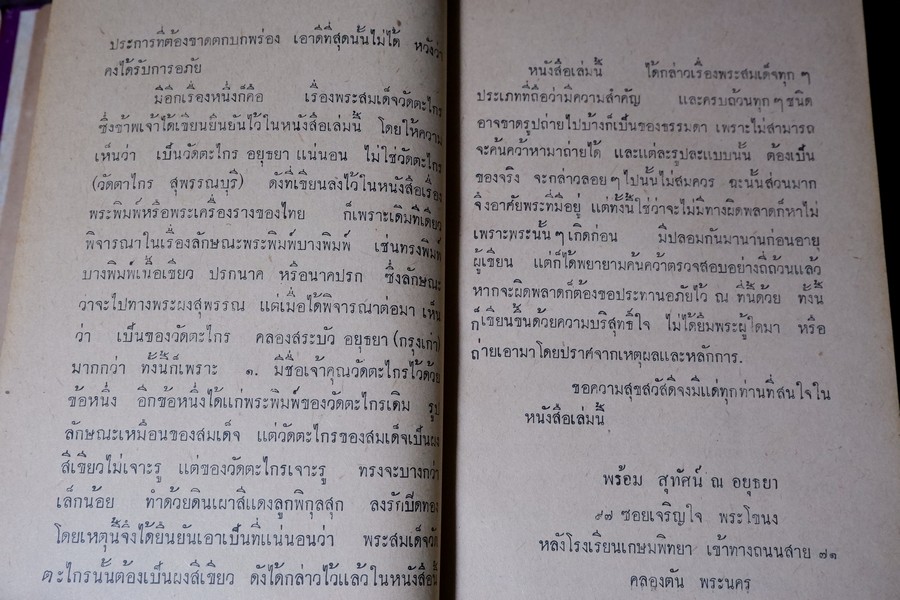 ประการที่ต้องขาดตกบกพร่อง เอาดีที่สุดนั้นไม่ได้ หวังว่า
คงได้รับการอภัย
มีอีกเรื่องหนึ่งก็คือ เรื่องพระสมเด็จวัดตะไกร
ซึ่งข้าพเจ้าได้เขียนยืนยันไว้ในหนังสือเล่มนี้ โดยให้ความ
เห็นว่า เป็นวัดตะไกร อยุธยา แน่นอน ไม่ใช่วัดตะไกร
(วัดตาไกร สุพรรณบุรี) ดังที่เขียนลงไว้ในหนังสือเรื่อง
พระพิมพ์หรือพระเครื่องรางของไทย ก็เพราะเดิมทีเดียว
พิจารณาในเรื่องลักษณะพระพิมพ์บางพิมพ์ เช่นทรงพิมพ์
บางพิมพ์เนื้อเขียว ปรกนาค หรือนาคปรก ซึ่งลักษณะ
ว่าจะไปทางพระผงสุพรรณ แต่เมื่อได้พิจารณาต่อมา เห็น
ว่า เป็นของวัดตะไกร คลองสระบัว อยุธยา (กรุงเก่า)
มากกว่า ทั้งนี้ก็เพราะ ๑. มีชื่อเจ้าคุณวัดตะไกรไว้ด้วย
ข้อหนึ่ง อีกข้อหนึ่งได้แก่พระพิมพ์ของวัดตะไกรเดิม รูป
ลักษณะเหมือนของสมเด็จ แต่วัดตะไกรของสมเด็จเป็นผง
สีเขียวไม่เจาะรู แต่ของวัดตะไกรเจาะรู ทรงจะบางกว่า
เล็กน้อย ทำด้วยดินเผาสีแดงลูกพิกุลสุก ลงรักปิดทอง
โดยเหตุนี้จึงได้ยืนยันเอาเป็นที่แน่นอนว่า พระสมเด็จวัด
ตะไกรนั้นต้องเป็นผงสีเขียว ดังได้กล่าวไว้แล้วในหนังสือนี้
หนังสือเล่มนี้ ได้กล่าวเรื่องพระสมเด็จทุก ๆ
ประเภทที่ถือว่ามีความสำคัญ และครบถ้วนทุก ๆ ชนิด
อาจขาดรูปถ่ายไปบ้างก็เป็นของธรรมดา เพราะไม่สามารถ
จะค้นคว้าหามาถ่ายได้ และแต่ละรูปละแบบนั้น ต้องเป็น
ของจริง จะกล่าวลอย ๆ ไปนั้นไม่สมควร ฉะนั้นส่วนมาก
จึงอาศัยพระที่มีอยู่ แต่ทั้งนี้ใช่ว่าจะไม่มีทางผิดพลาดก็หาไม่
เพราะพระนั้น ๆ เกิดก่อน มีปลอมกันมานานก่อนอายุ
ผู้เขียน แต่ก็ได้พยายามค้นคว้าตรวจสอบอย่างถี่ถ้วนแล้ว
หากจะผิดพลาดก็ต้องขอประทานอภัยไว้ ณ ที่นี้ด้วย ทั้งนี้
ก็เขียนขึ้นด้วยความบริสุทธิ์ใจ ไม่ได้ยืมพระผู้ใดมา หรือ
ถ่ายเอามาโดยปราศจากเหตุผลและหลักการ.
ขอความสุขสวัสดีจงมีแด่ทุกท่านที่สนใจใน
หนังสือเล่มนี้
พร้อม สุทัศน์ ณ อยุธยา
๙๗ ซอยเจริญใจ พระโขนง
หลังโรงเรียนเกษมพิทยา เข้าทางถนนสาย ๗๑
คลองตัน พระนคร